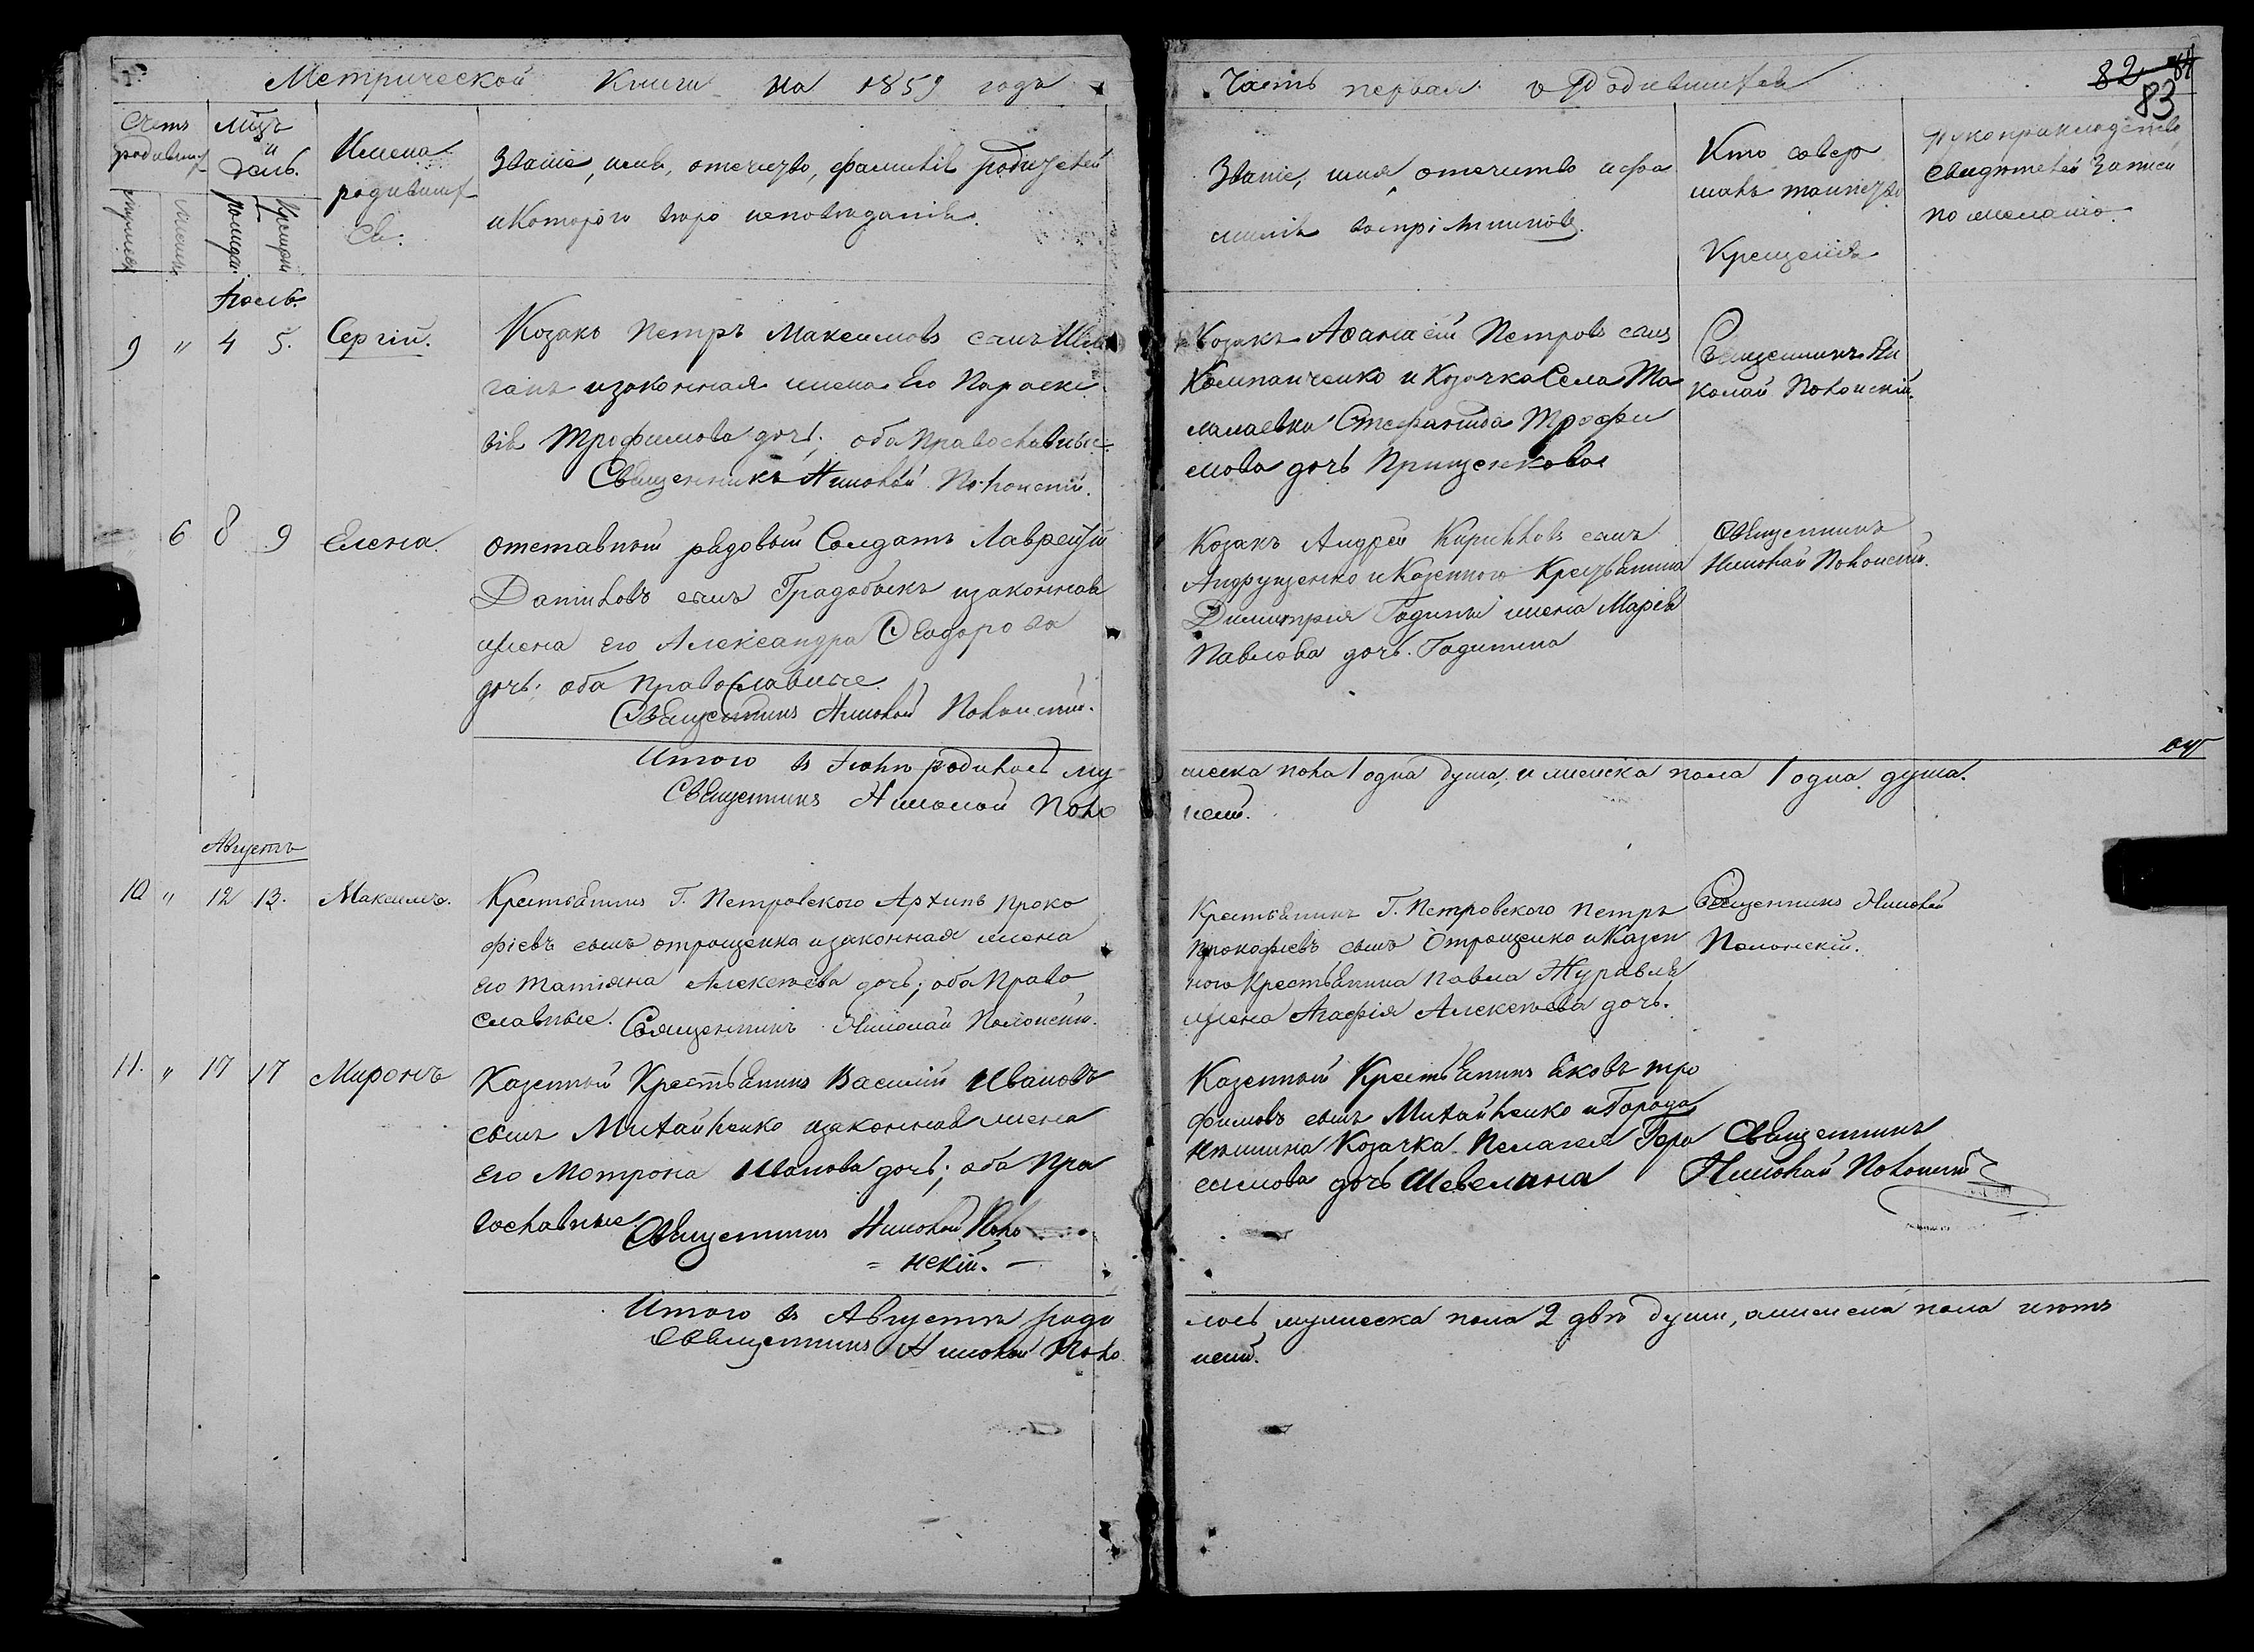 Метрической Книги на 1859 годъ
Часть первая о Родившихся
82 84
83
Счетъ родившихъ
Мцъ и день.
Имена родившихся.
Званіе, имя, отечество, фамилія родителей
и которого вѣроисповѣданія.
Званіе, имя, отечитво и фа
милія воспріемниковъ.
Кто совер
шалъ таинство
Крещенія
Рукоприкладство
свидѣтелей записи
по желанію.
Іюль.
9 " 4 5. Сергій.
Козакъ Петръ Максимовъ сынъ
ганъ изаконная жена Его Параске
вія Трофимова дочь; оба Православные.
Священникъ Николай Полонскій.
Козакъ Аѳанасій Петровъ сынъ
Компанченко и Козачка Села Ма
ламаевки Стефанида Трофи
мова дочь Прищенкова
Священникъ Ни
колай Полонскій.
6 8 9 Елена.
Отставный рядовый Солдатъ Лаврентій
Даниловъ сынъ Градобыкъ изаконная
жена его Александра Ѳеодорова
дочь; оба Православные.
Священникъ Николай Полонскій.
Козакъ Андрей Кирилловъ сынъ
Андрущенко и Казенного Крестьянина
Димитрія Годины жена Марія
Павлова дочь. Годинина
Священникъ
Николай Полонскій.
Итого въ Іюлѣ родилось му
жеска пола 1 одна душа, и женска пола 1 одна душа.
Священникъ Николай Поло
нскій.
Августъ
10 " 12 13. Максимъ.
Крестьянинъ Г. Петровского Архипъ Проко
фіевъ сынъ Отрощенко изаконная жена
его Татіяна Алексѣева дочь; оба Право
славные. Священникъ Николай Полонскій.
Крестьянинъ Г. Петровского Петръ
Прокофіевъ сынъ Отрощенко и Казен
ного Крестьянина Павла Журавля
жена Агафія Алексѣева дочь.
Священникъ Николай
Полонскій.
11. " 17 17 Миронъ
Казенный Крестьянинъ Василій Ивановъ
сынъ Михайленко изаконная жена
Его Мотрона Иванова дочь; оба Пра
вославные. Священникъ Николай Поло
= нскій. —
Казенный Крестьянинъ Яковъ Тро
фимовъ сынъ Михайленко и Города
Козачка Пелагея Гера
симова дочь Шевелина
Священникъ
Николай Полонскій
Итого въ Августѣ роди
лось мужеска пола 2 двѣ души, а женска пола нѣтъ
Священникъ Николай Поло
нскій.